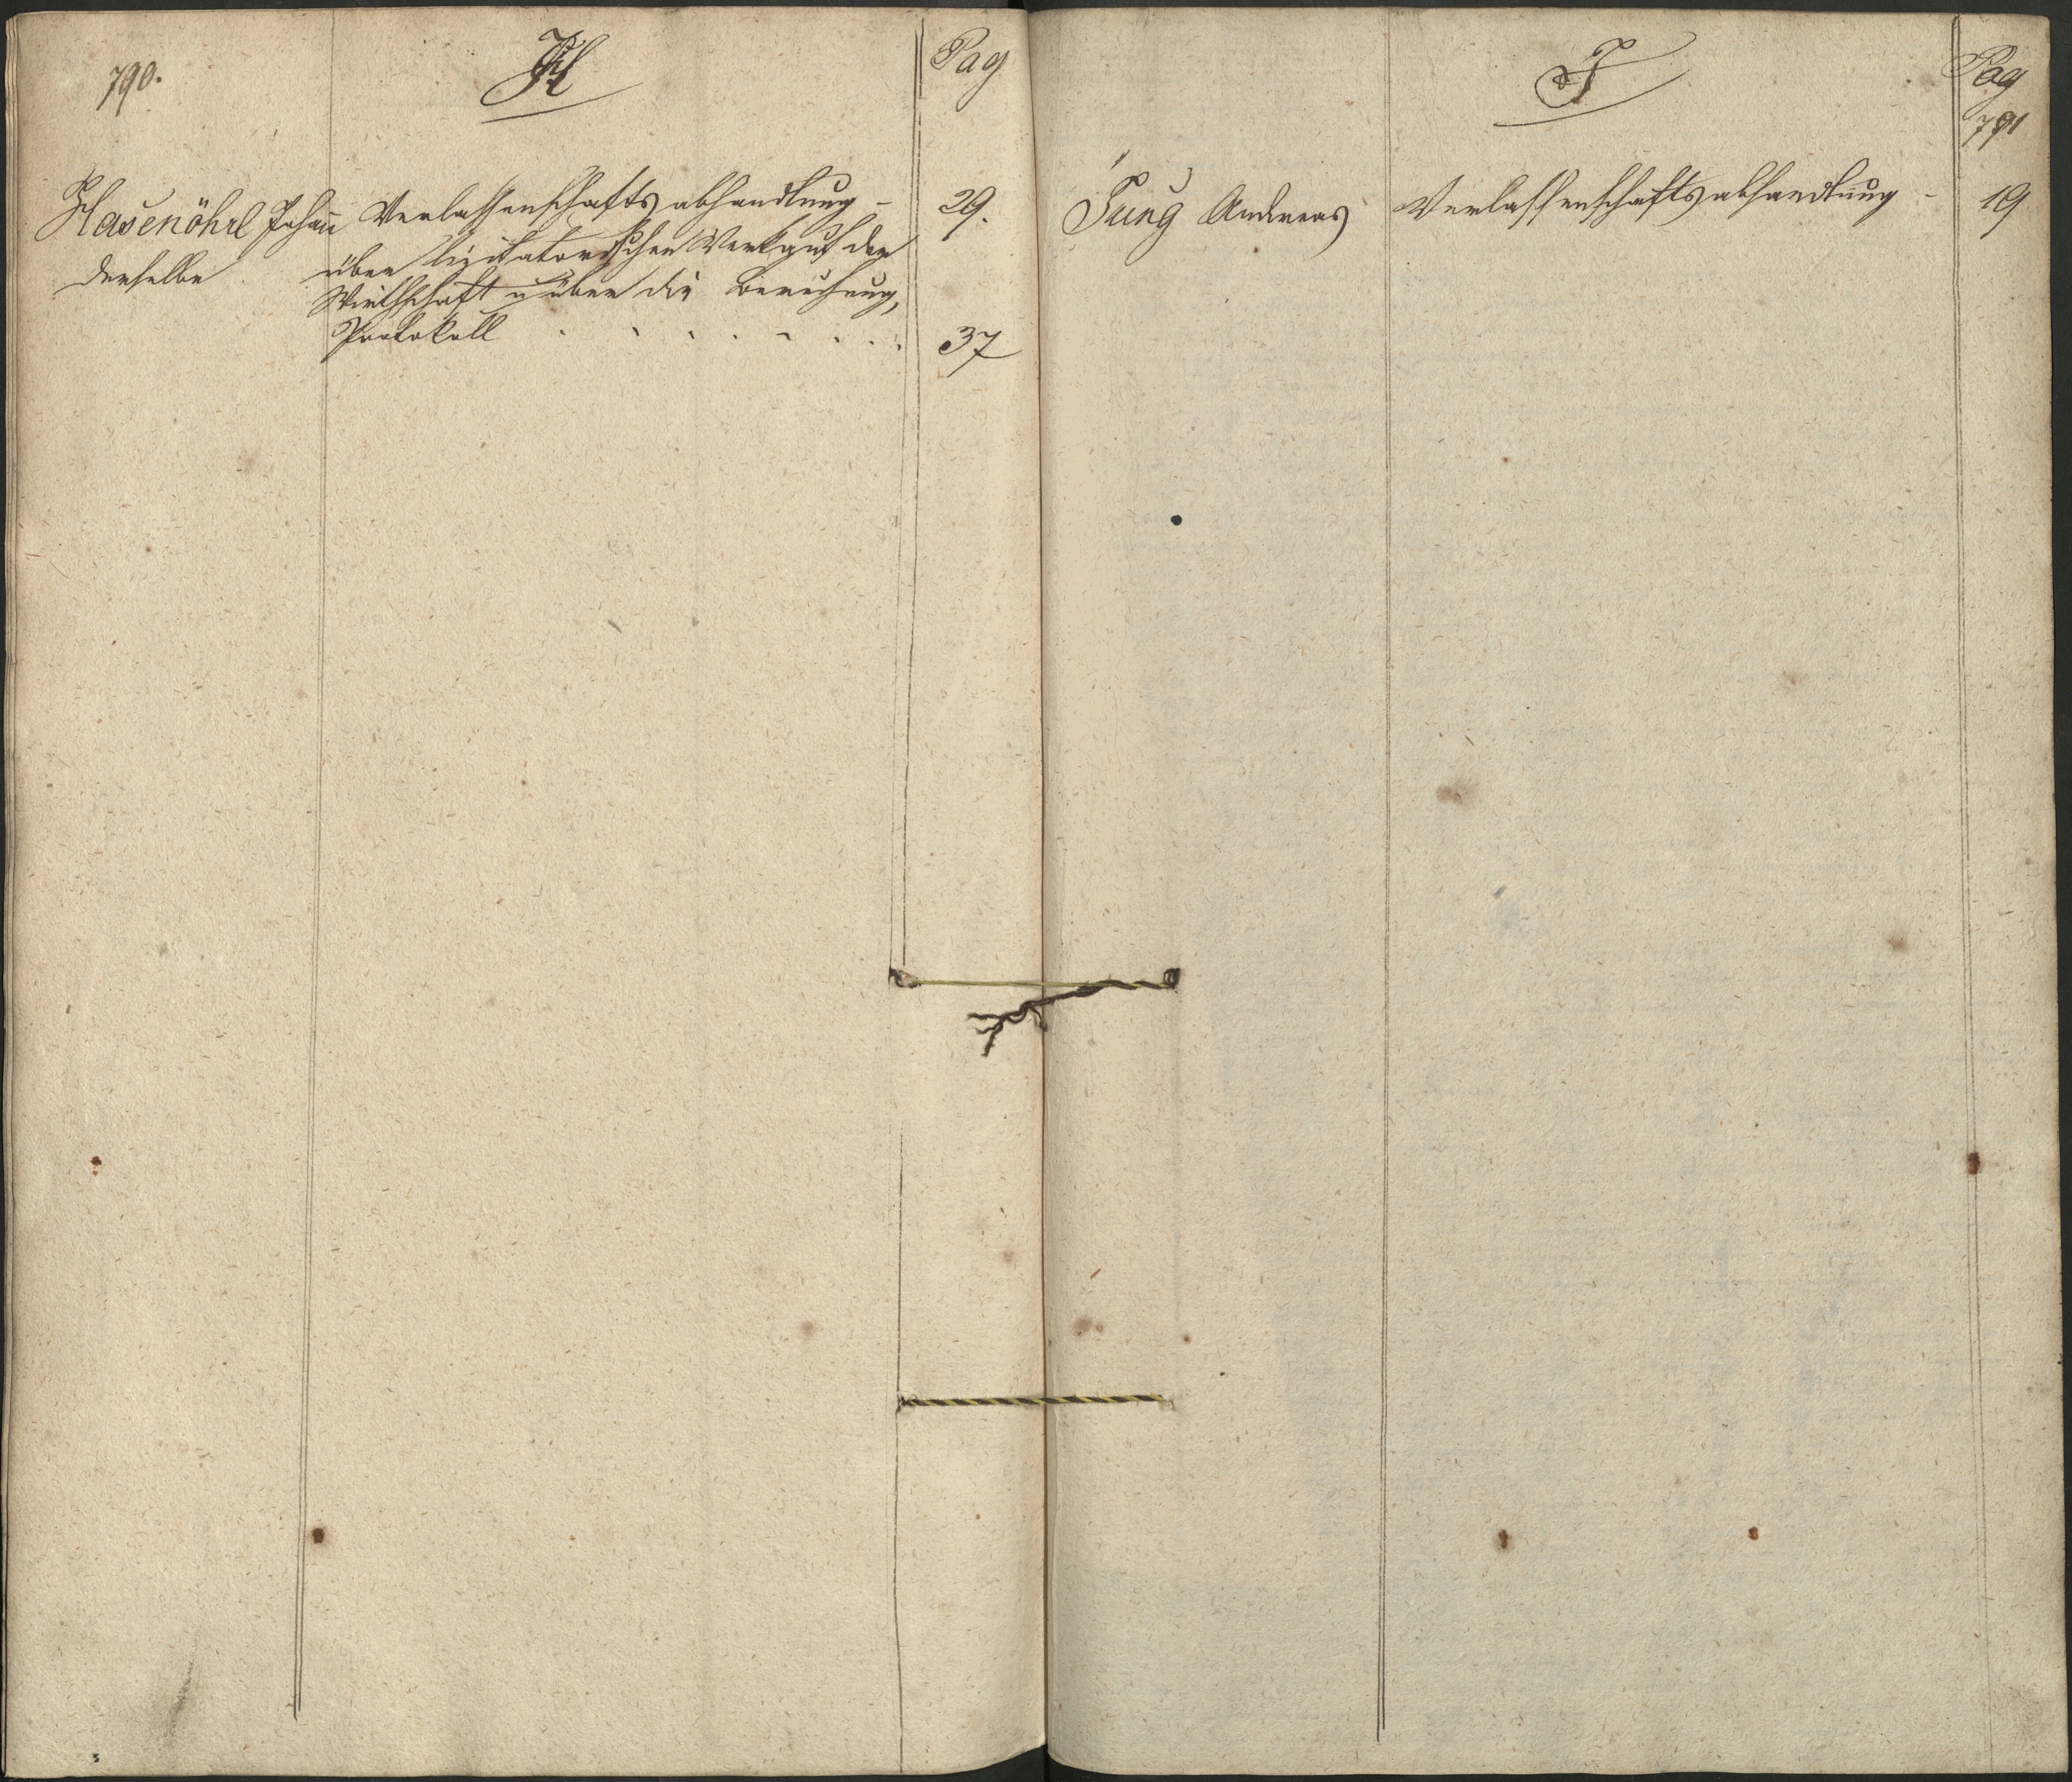 790.
H
Pag
Hasenöhrl Johañ Verlassenschaftsabhandlung - 29.
derselbe über lizitatorischen Verkauf der
Wirthschaft u über die
Protokoll . . . . . . . . 37
J
Pag
791
Jung Andreas Verlassenschaftsabhandlung - 19